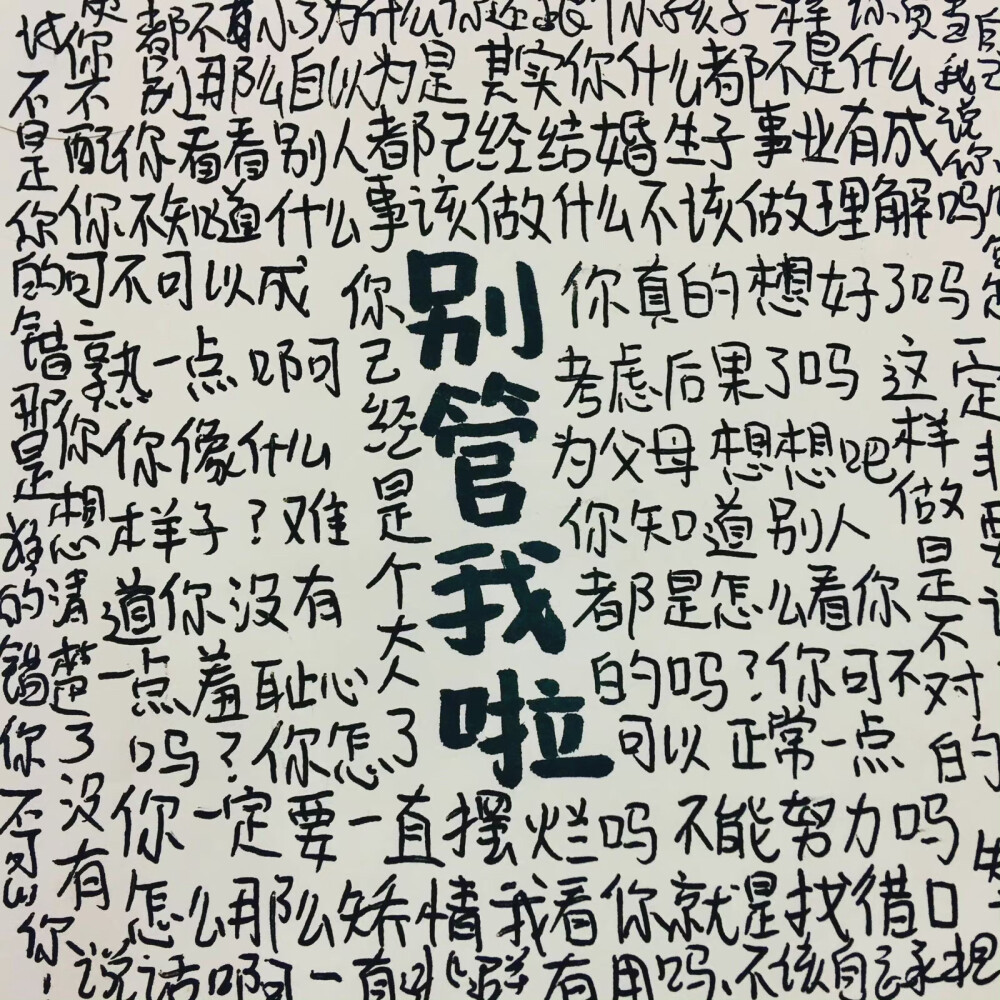 都不小了为什么你还跟个小孩子一样
别那么自以为是其实你什么都不是什么
不配你看看别人都已经结婚生子事业有成
你不知道什么事该做什么不该做理解吗
可不可以成
熟一点啊
你像什么
样子?难
道你没有
一点羞耻心
吗?你怎了
你已经是个大人
别管我啦
你真的想好了吗
考虑后果了吗
为父母想想吧
你知道别人
都是怎么看你
的吗?你可不
可以正常一点
这样做是不对的
一定
不是你的错那是谁的错
你想清楚了没有
你一定要一直摆烂吗不能努力吗
怎么那么矫情我看你就是找借口
说话啊一直
有用吗